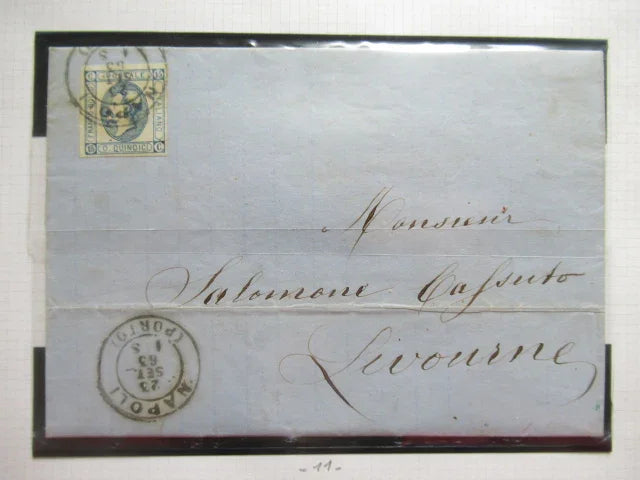 C. POSTALE 15
FRANCO BOLLO
ITALIANO
15 C. QUINDICI C.
Monsieur
Salomone Cassuto
Livourne
NAPOLI
23
SET.
63
1 S
(PORTO)
- 11 -